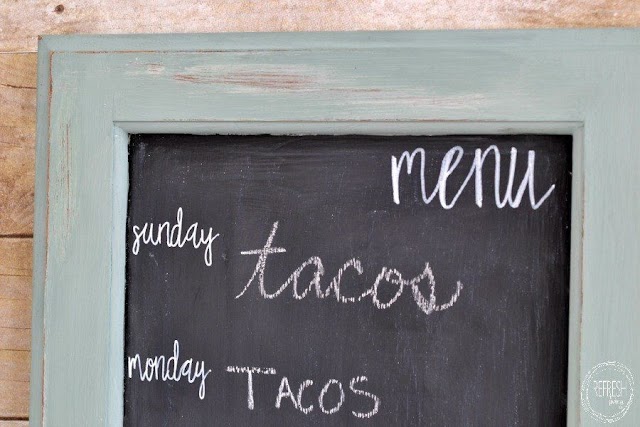 menu
sunday tacos
monday TACOS
REFRESH
living